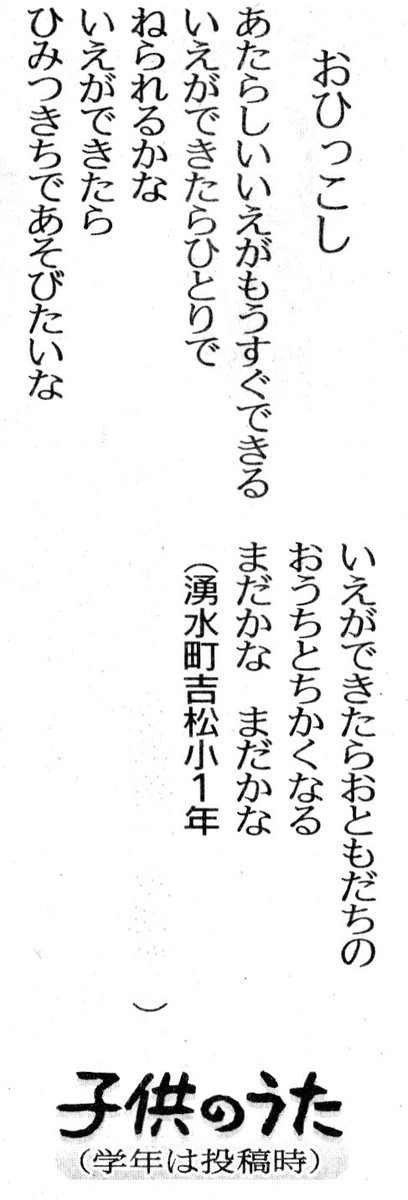 おひっこし
あたらしいいえがもうすぐできる
いえができたらひとりで
ねられるかな
いえができたら
ひみつきちであそびたいな
いえができたらおともだちの
おうちとちかくなる
まだかな　まだかな
（湧水町吉松小1年
）
子供のうた
（学年は投稿時）